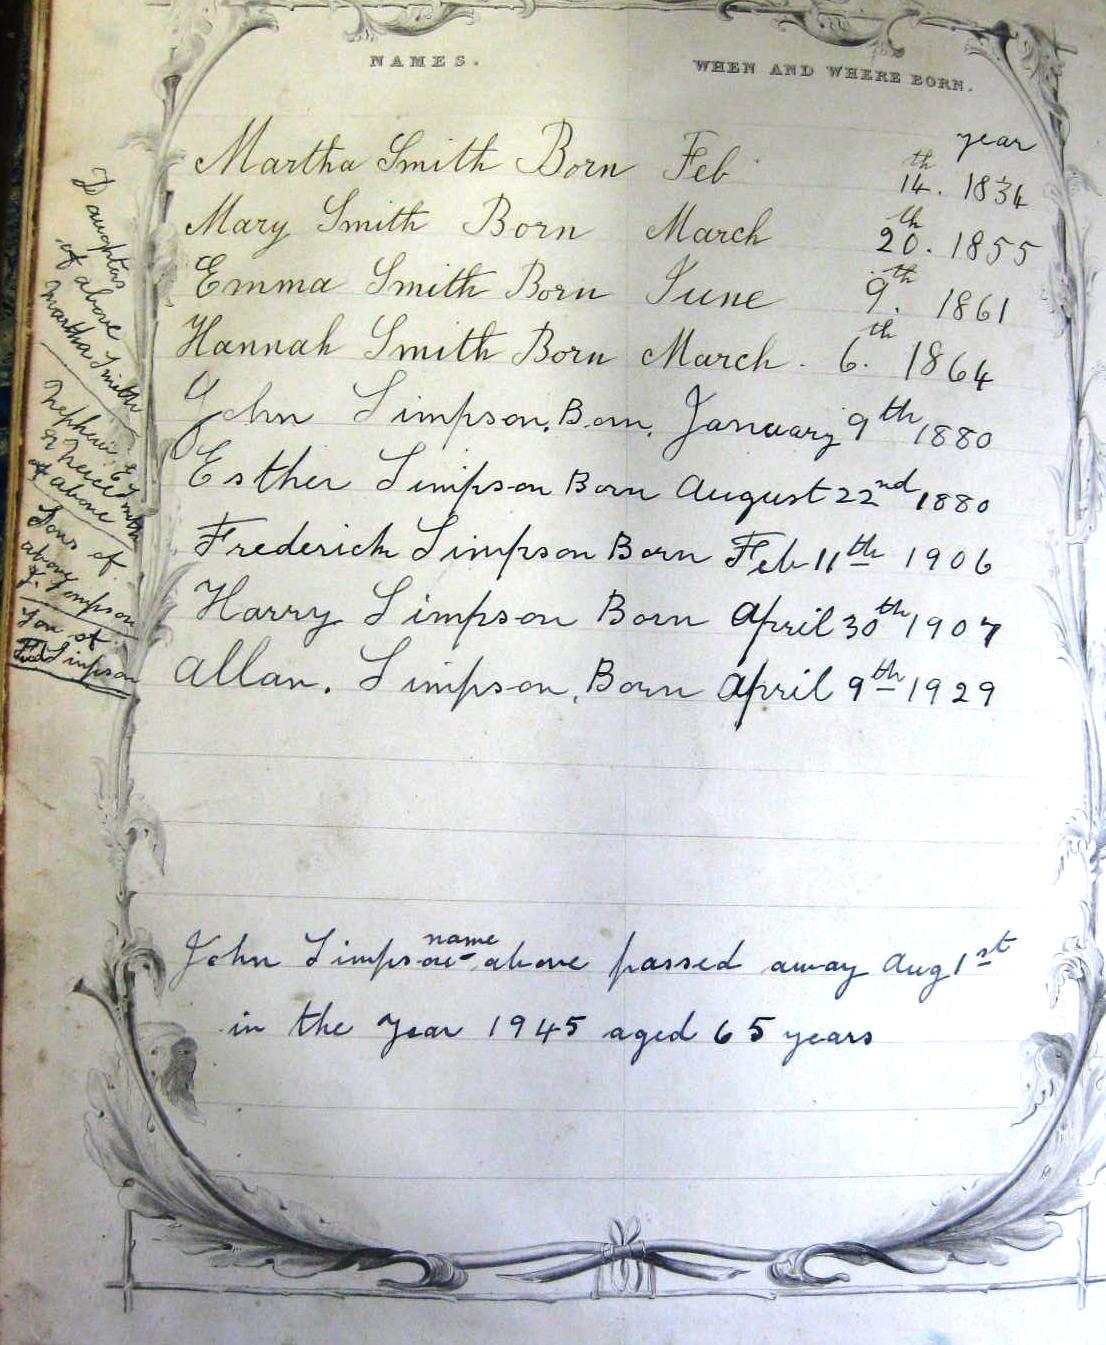 NAMES.
WHEN AND WHERE BORN.
year
Martha Smith Born Feb 14th. 1834
Mary Smith Born March 20th. 1855
Emma Smith Born June 9th. 1861
Hannah Smith Born March. 6th. 1864
John Simpson. Born. January 9th 1880
Esther Simpson Born August 22nd 1880
Frederick Simpson Born Feb 11th 1906
Harry Simpson Born April 30th 1907
Allan. Simpson, Born April 9th 1929
Daughters
of above
Martha Smith
Nephew &
Niece
of above
Sons of
above
J. Simpson
Son of
Fred Simpson
name
John Simpson above passed away Aug 1st
in the year 1945 aged 65 years